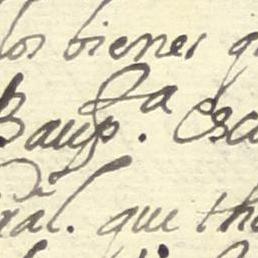 los bienes q
Baup.ta Esc
ral. que the